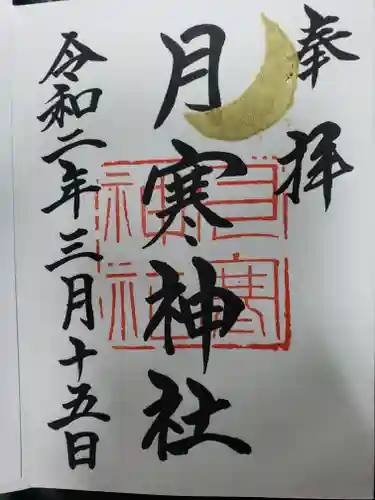 奉拝
月寒神社
月寒
神社
令和二年三月十五日